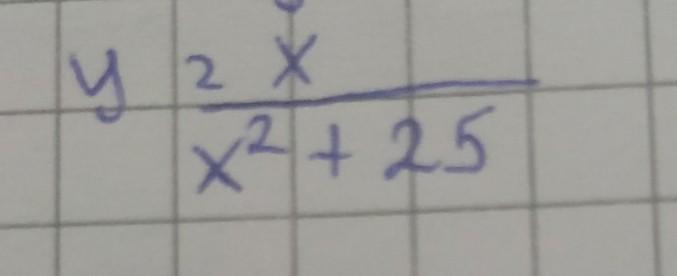 y = x
x² + 25